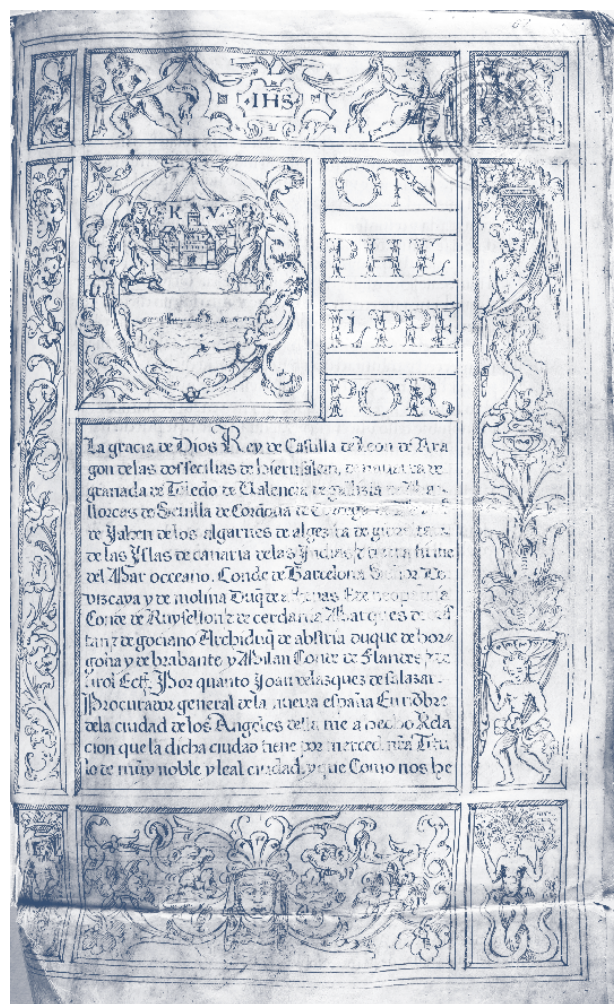 67
IHS
K V
ON
PHE
LPPE
POR
La gracia de Dios Rey de Castilla de Leon de Ara
gon de las dos secilias de hierusalem, de navarra de
granada de Toledo de Valencia de galizia de Ma
llorcas de Sevilla de Cordova de
de Jahen de los algarves de algezira de
de las Yslas de canaria de las Yndias
del Mar occeano. Conde de Barcelona Señor De
vizcaya y de molina Duq̃ de athenas E de neopatria
Conde de Ruysellon E de cerdania Marques de
tan E de gociano Archiduq̃ de abstria duque de bor-
goña y de brabante y Milan Conde de Flandes y de
tirol Ectª. Por quanto Joan velasquez de salazar
Procurador general de la nueva españa En nõbre
de la ciudad de los Angeles della me a hecho Rela
cion que la dicha ciudad tiene por merced nr̃a Titu
lo de muy noble y leal ciudad. y que Como nos he